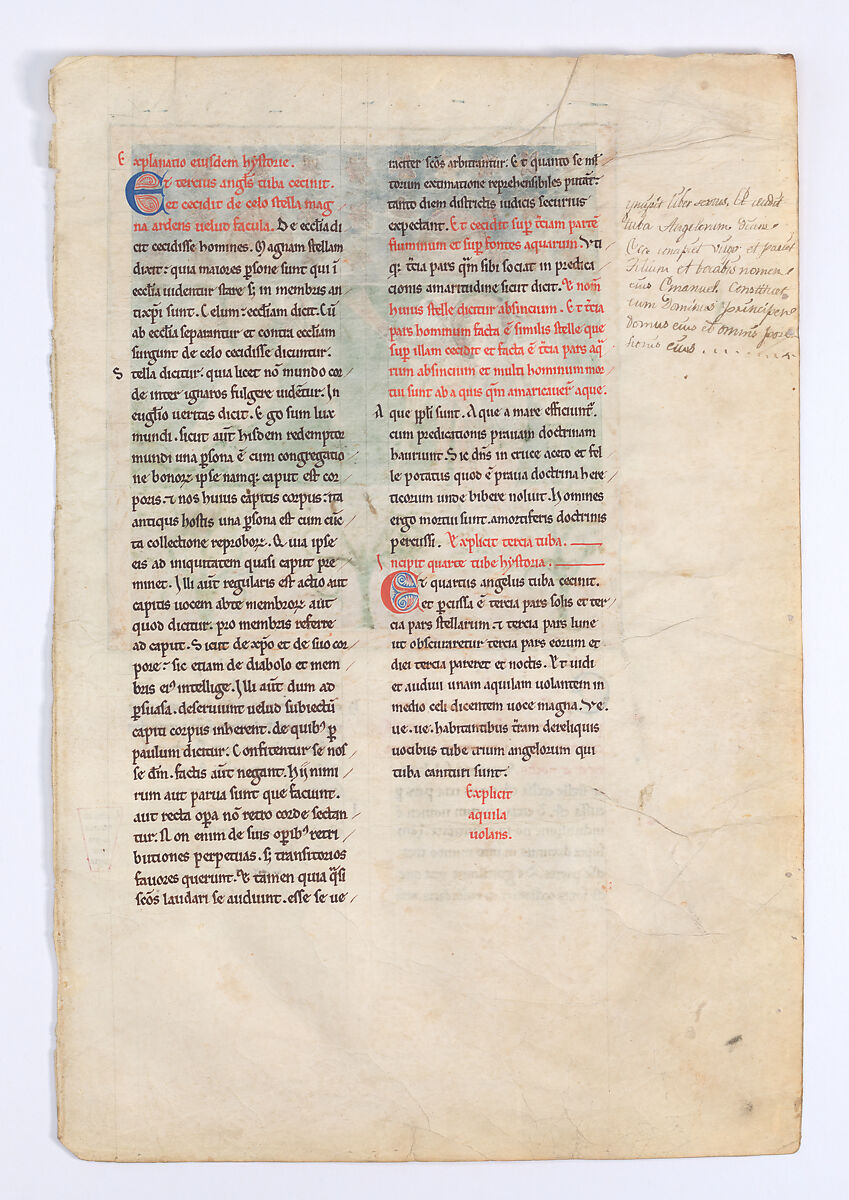 Explanatio eiusdem hystorie.
Et tercius angls tuba cecinit.
et cecidit de celo stella mag
na ardens uelud facula. De ecclia di
cit cecidisse homines. Magnam stellam
dixit: quia maiores psone sunt qui ī
ecclia uidentur stare sȝ in membris an
tixp̄i sunt. Celum: eccliam dicit. Cū
ab ecclia separantur et contra eccliam
surgunt de celo cecidisse dicuntur.
Stella dicitur: quia licet nō mundo cor
de inter ignaros fulgere uidētur. In
euglio ueritas dicit. Ego sum lux
mundi. sicut aūt hisdem redemptor
mundi una psona ē cum congregatio
ne bonorꝝ ipse namqꝫ caput est cor
poris. ⁊ nos huius capitis corpus: ita
antiqus hostis una psona est cum cūc
ta collectione reproborꝝ. Quia ipse
eis ad iniquitatem quasi caput pre
minet. Illi aūt regularis est actio aut
capitis uocem ab te membrorꝝ aūt
quod dicitur: pro membris referre
ad caput. Sicut de xp̄o et de suo cor
pore: sic etiam de diabolo et mem
bris eiꝰ intellige. Illi aūt dum ad
psuasa. deseruiunt uelud subiectū
capiti corpus inherent. de quibꝰ p
paulum dicitur: Confitentur se nos
se dm̄. factis aūt negant. Hij nimi
rum aut parua sunt que faciunt.
aut recta opa nō retro corde sectan
tur. Non enim de suis opibꝰ retri
butiones perpetuas. sȝ transitorios
fauores querunt. Et tamen quia qsi
scōs laudari se audiunt. esse se ue
raciter scōs arbitrantur. Et quanto se
torum extimatione reprehensibiles putāt:
tanto diem districtis iudicis securius
expectant. Et cecidit sup tciam partē
fluminum et sup fontes aquarum. Vti
qꝫ tcia pars qm̄ sibi sociat in predica
cionis amaritudine sicut dicit. Et nom̄
huius stelle dicitur absincium. Et tcia
pars hominum facta ē similis stelle que
sup illam cecidit et facta ē tcia pars aq
rum absincium et multi hominum mor
tui sunt ab a quis qm̄ amaricauer aque.
Aque ppli sunt. Aque a mare efficiunt.
cum predicationis prauam doctrinam
hauriunt. Sic dns in cruce aceto et fel
le potatus quod ē praua doctrina here
ticorum unde bibere noluit. Homines
ergo mortui sunt. a mortiferis doctrinis
percussi. Explicit tercia tuba.
Incipit quarte tube hystoria.
Et quartus angelus tuba cecinit.
et pcussa ē tercia pars solis et ter
cia pars stellarum. ⁊ tercia pars lune
ut obscuraretur tercia pars eorum et
diei tercia pareret et noctis. Et uidi
et audiui unam aquilam uolantem in
medio celi dicentem uoce magna. Ve.
ue. ue. habitantibus tram de reliquis
uocibus tube trium angelorum qui
tuba canituri sunt.
Explicit
aquila
uolans.
liber sextus. Et cecidit
tuba Angelorum
Ecce concipiet virgo et pariet
Filium et vocabis nomen
eius Emanuel. Constituet
eum Dominus principem
domus eius et omnis
eius